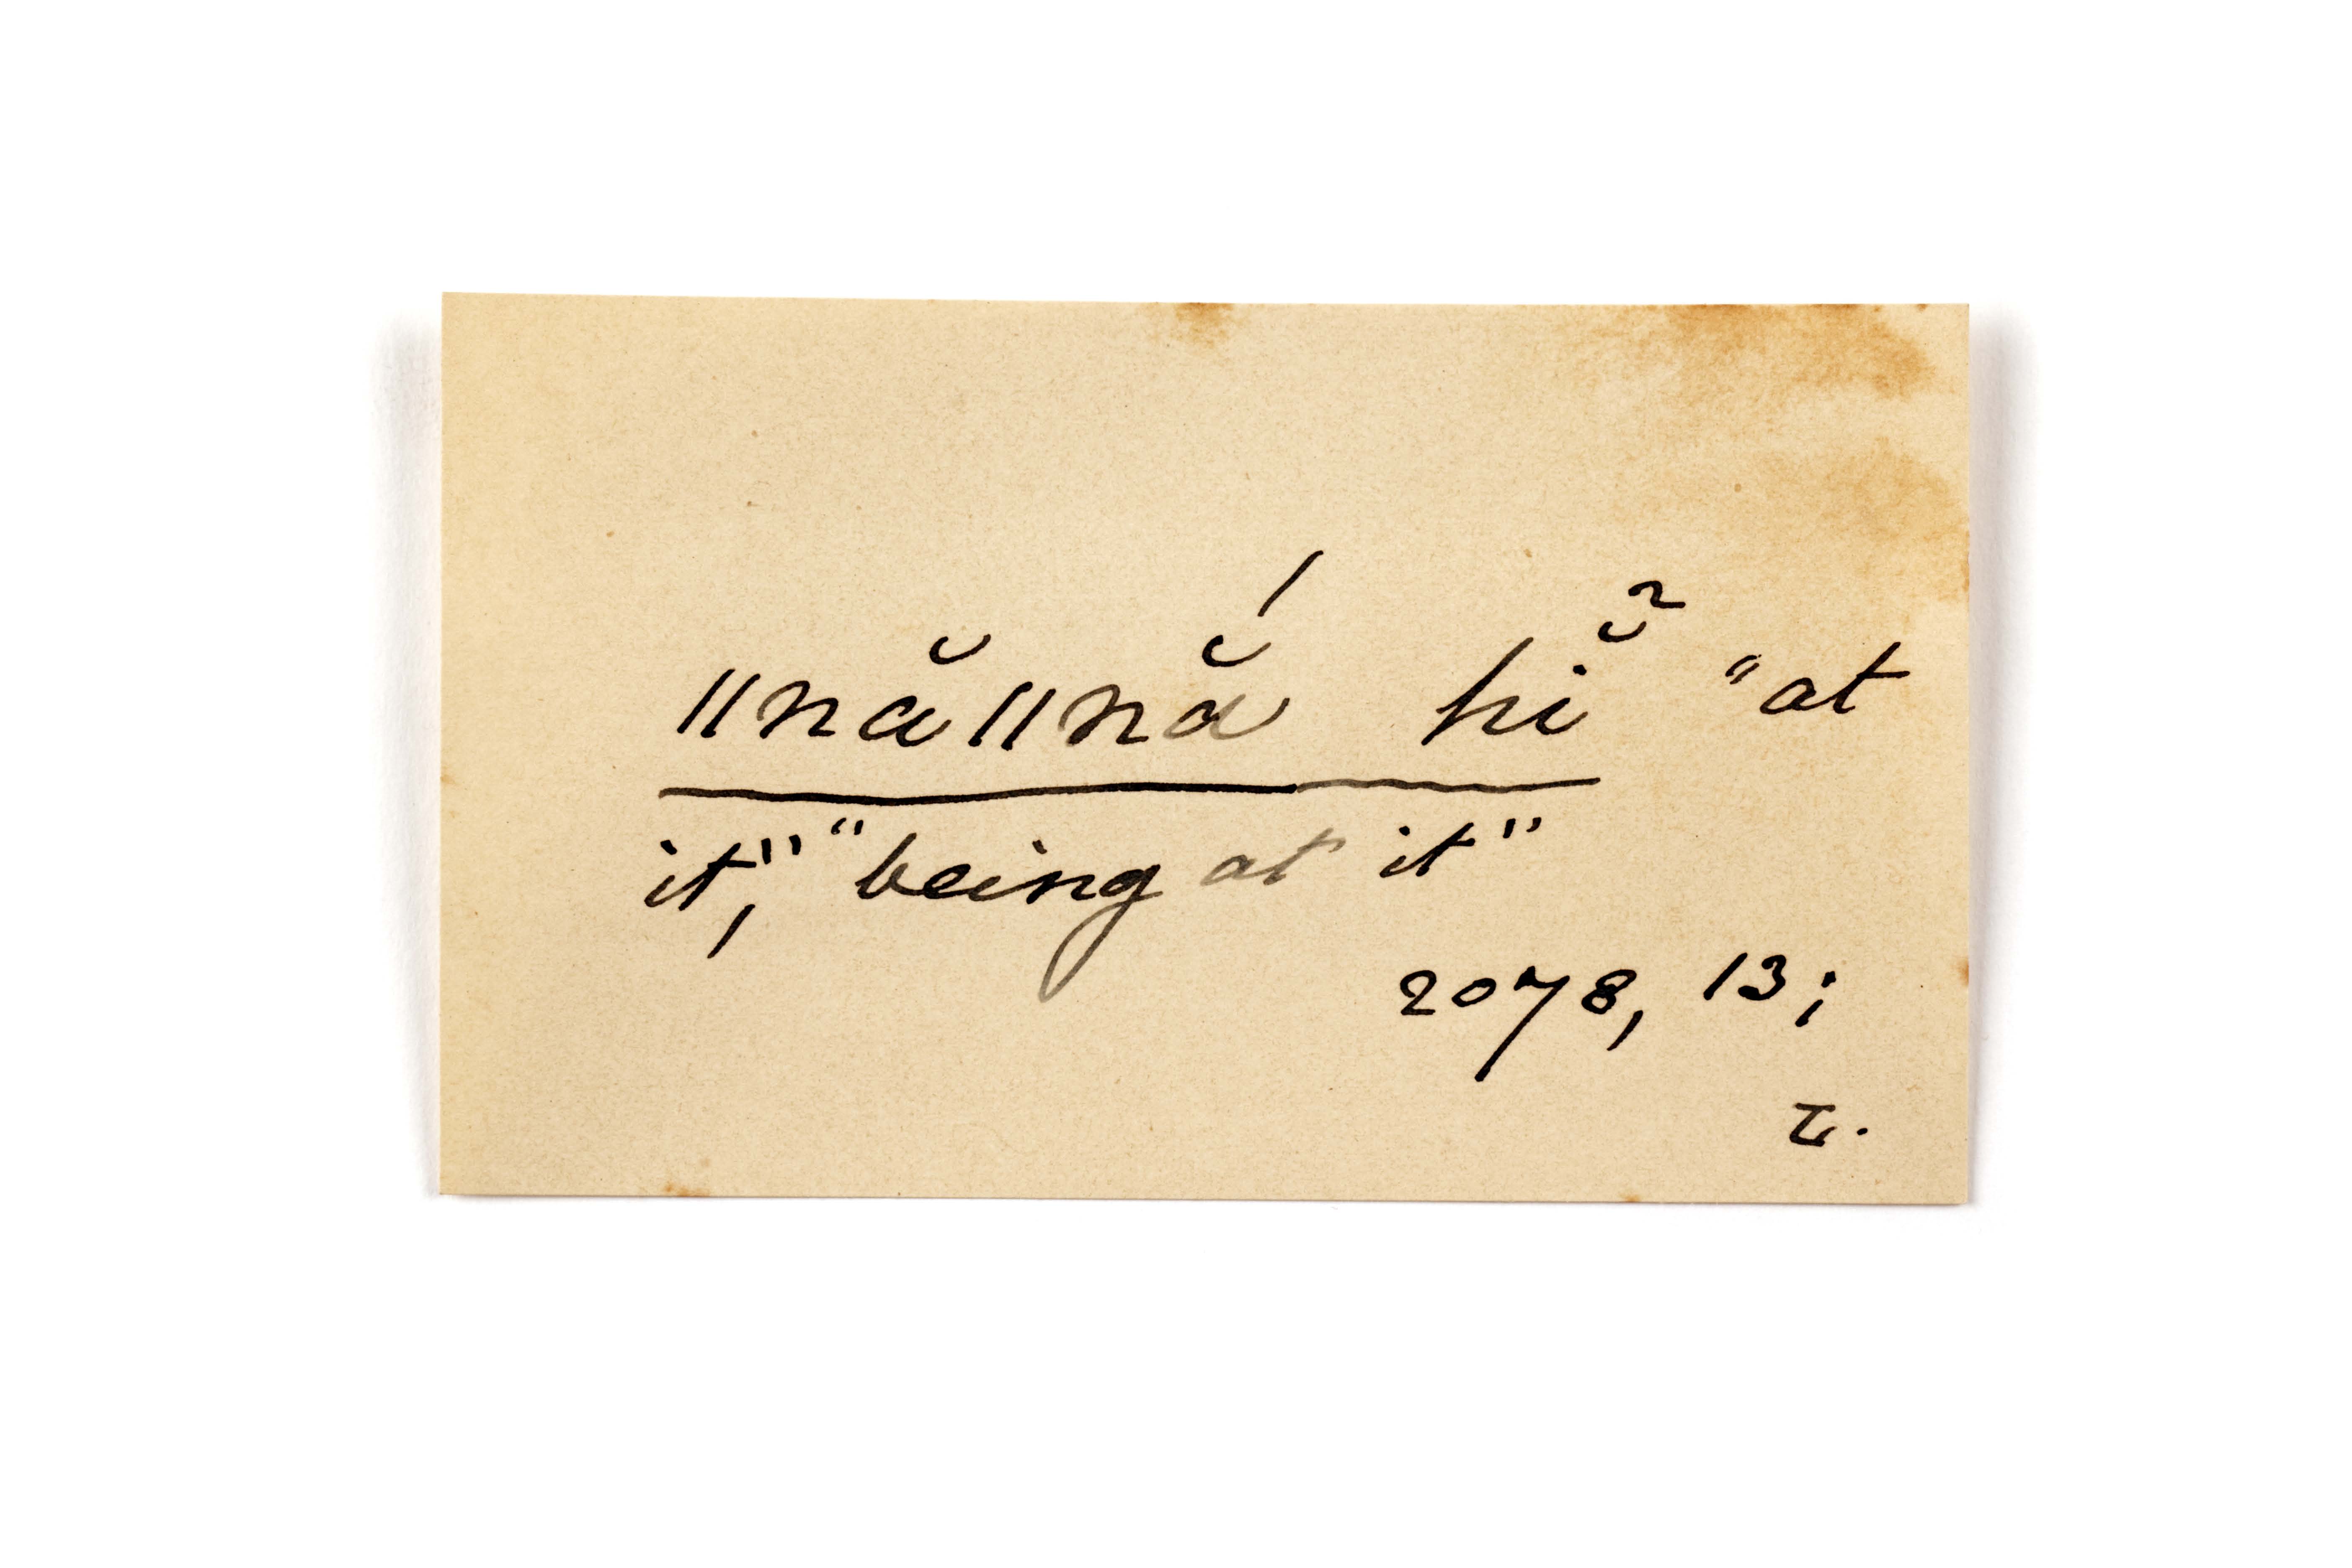 ǁnăǁnắ hĭ̃ "at
it," "being at it"
2078, 13;